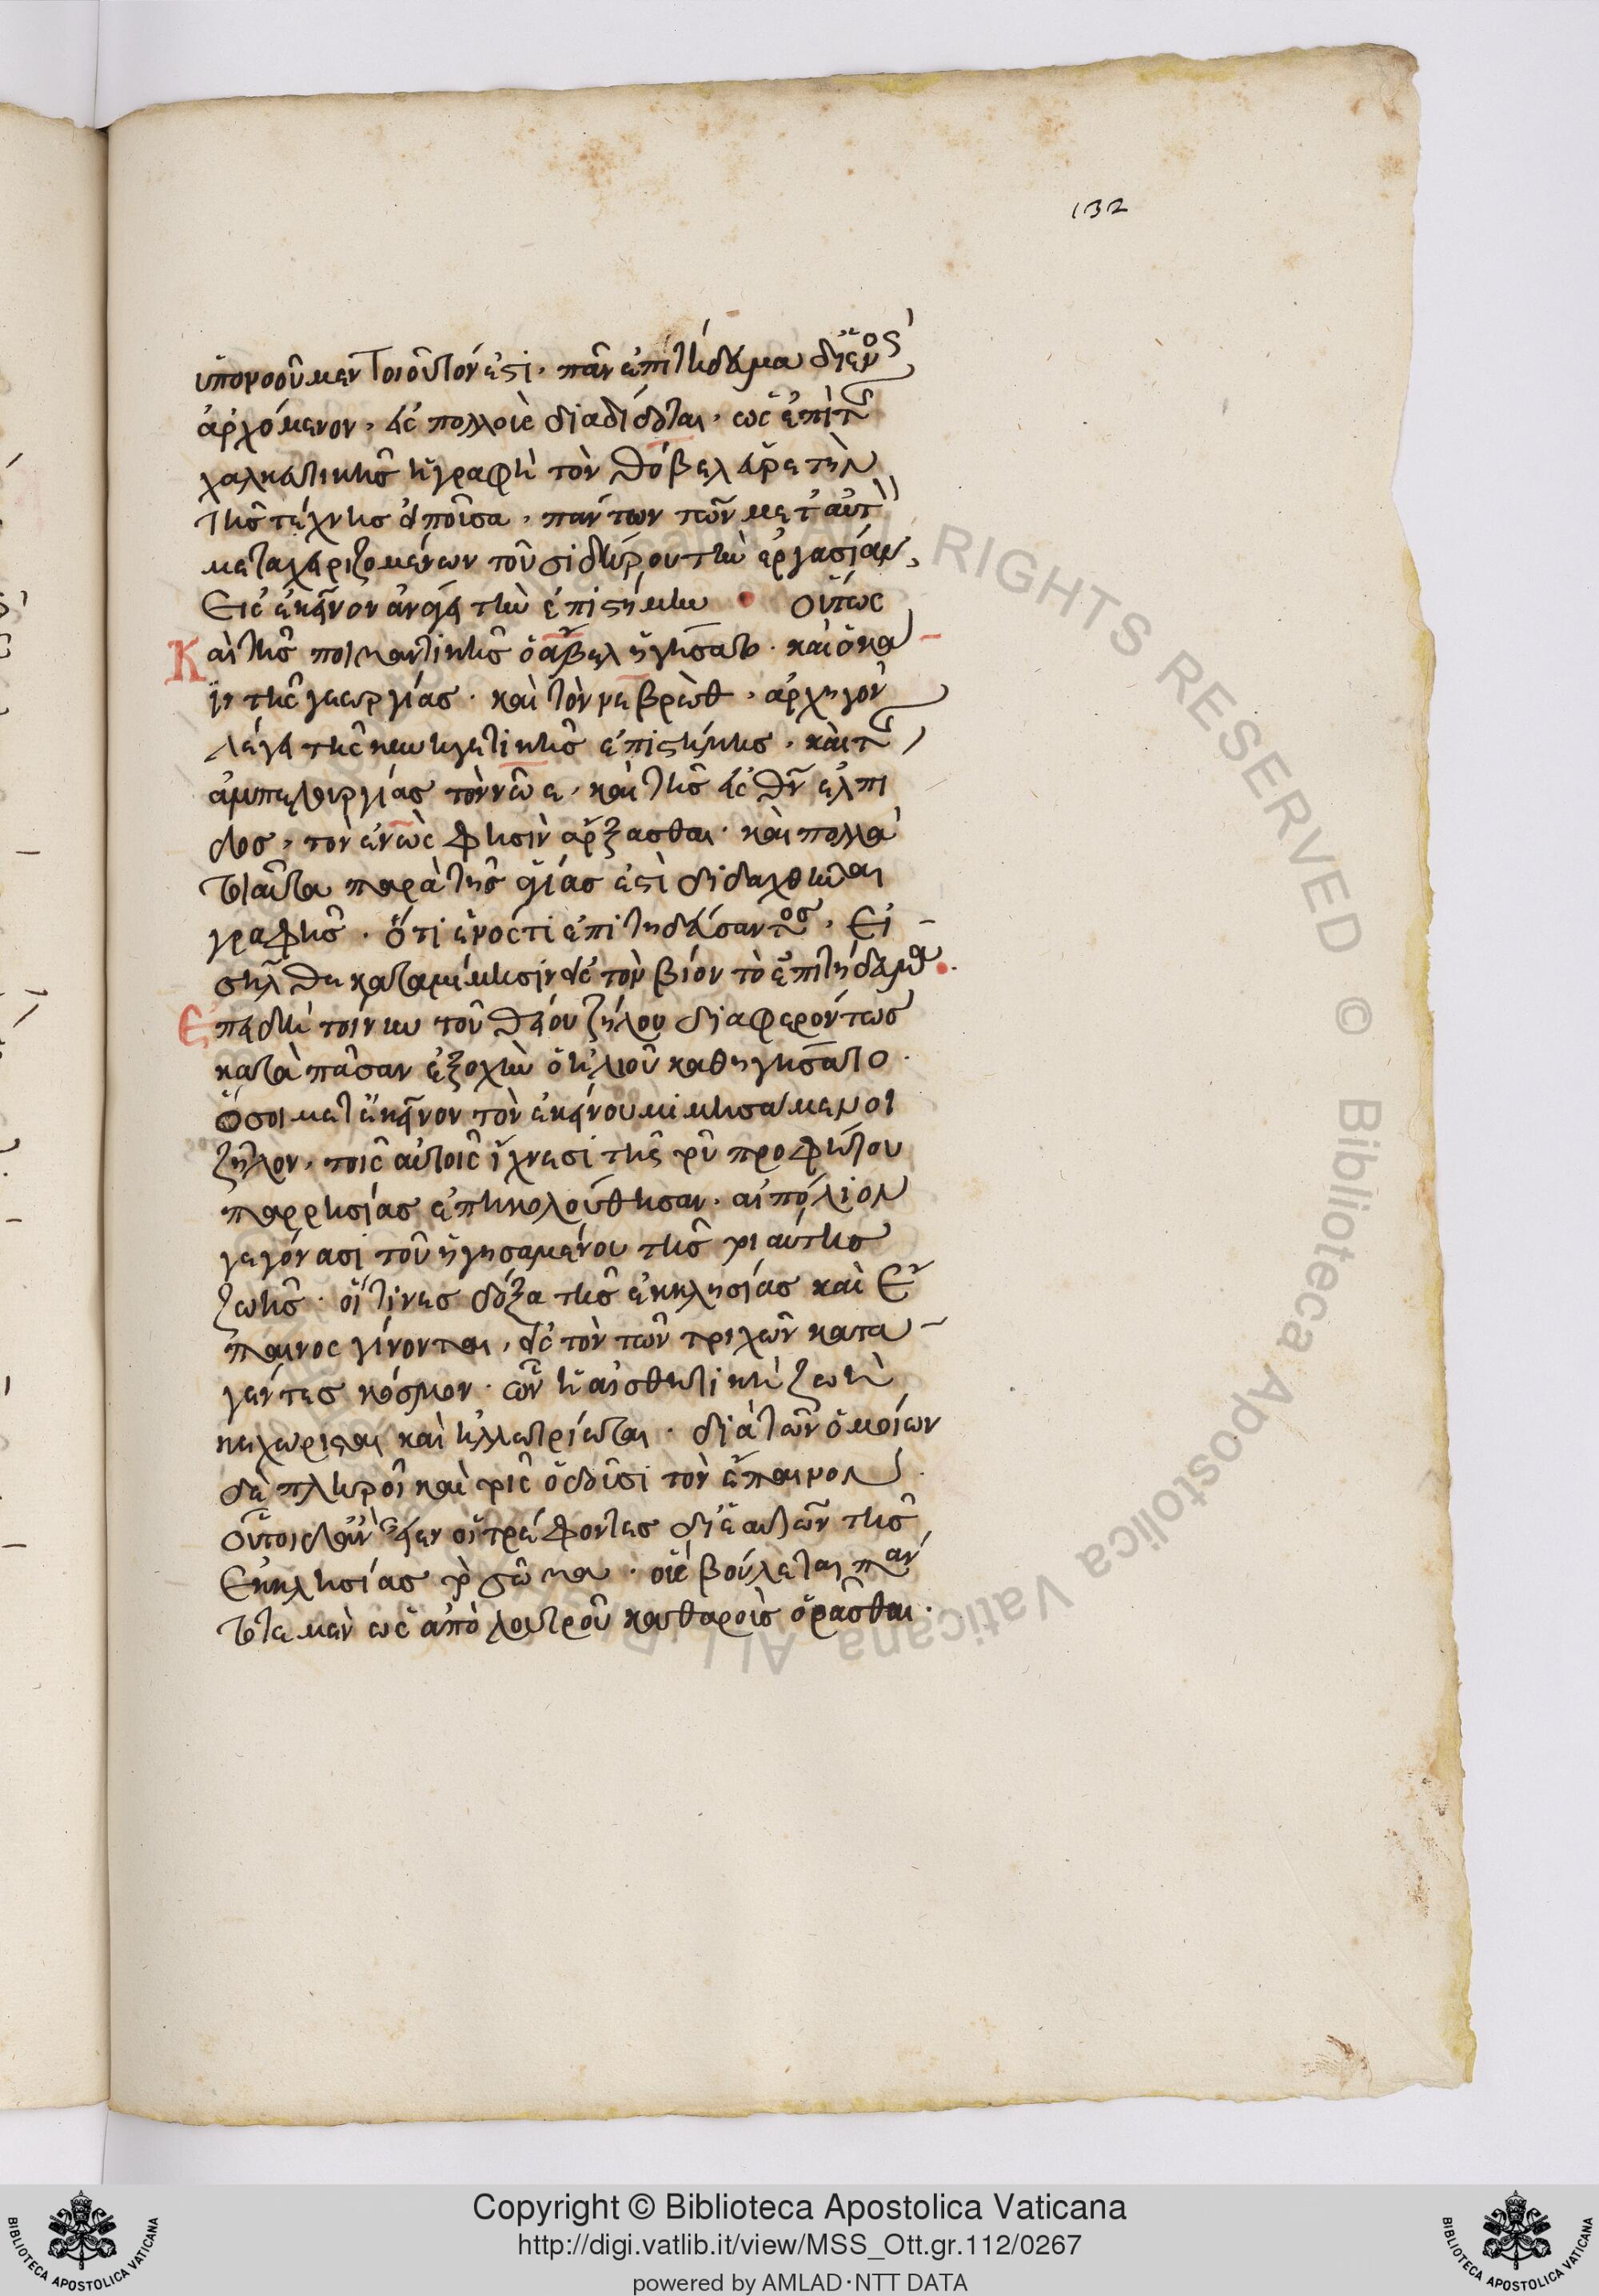 132
ὑπονοοῦμεν τοιοῦτόν ἐστι· πᾶν ἐπιτήδευμα δι' ἑνὸς
ἀρχόμενον, εἰς πολλοὺς διαδίδοται, ὡς ἐπὶ τῆς
χαλκευτικῆς ἡ γραφὴ τὸν θόβελ εὑρετὴν
τῆς τέχνης εἰποῦσα, πάντων τῶν μετ' αὐτὸν
μεταχειριζομένων τοῦ σιδήρου τὴν ἐργασίαν,
Εἰς ἐκεῖνον ἀνάγει τὴν ἐπιστήμην · οὕτως
Καὶ τῆς ποιμαντικῆς ὁ ἄβελ ἡγήσατο· καὶ ὁ κα
ϊν τῆς γεωργίας· καὶ τὸν νεβρὼθ, ἀρχηγὸν
λέγει τῆς κυνηγετικῆς ἐπιστήμης, καὶ τῆς
ἀμπελουργίας τὸν νῶε, καὶ τῆς εἰς θν ἐλπί
δος, τὸν ἐνὼς φησὶν ἄρξασθαι· καὶ πολλὰ
τοιαῦτα παρὰ τῆς ἁγίας ἐστὶ διδαχθῆναι
γραφῆς· ὅτι ἑνός τι ἐπιτηδεύσαντος, Εἰ
σῆλθε κατὰ μίμησιν εἰς τὸν βίον τὸ ἐπιτήδευμα.
Επειδὴ τοίνυν τοῦ θείου ζήλου διαφερόντως
κατὰ πᾶσαν ἐξοχὴν ὁ ἠλιοῦ καθηγήσατο·
Ὅσοι μετ' ἐκεῖνον τὸν ἐκείνου μιμησάμενοι
ζῆλον, τοῖς αὐτοῖς ἴχνεσι τῆς τοῦ προφήτου
παρρησίας ἐπηκολούθησαν, αἰπόλιον
γεγόνασι τοῦ ἡγησαμένου τῆς τοιαύτης
ζωῆς· οἵτινες δόξα τῆς ἐκκλησίας καὶ Ἔ
παινος γίνονται, εἰς τὸν τῶν τριχῶν κατα
γέντες κόσμον· ὧν ἡ αἰσθητικὴ ζωὴ
κεχώρισται καὶ ἠλλοτρίωται· διὰ τῶν ὁμοίων
δὲ πληροῖ καὶ τοῖς ὀδοῦσι τὸν ἔπαινον·
οὗτοι δ' ἂν εἶεν οἱ τρέφοντες δι' ἑαυτῶν τῆς
Ἐκκλησίας τὸ σῶμα· οὓς βούλεται πάν
τοτε μὲν ὡς ἀπὸ λουτροῦ καθαροὺς ὁρᾶσθαι·
Copyright © Biblioteca Apostolica Vaticana
http://digi.vatlib.it/view/MSS_Ott.gr.112/0267
powered by AMLAD·NTT DATA